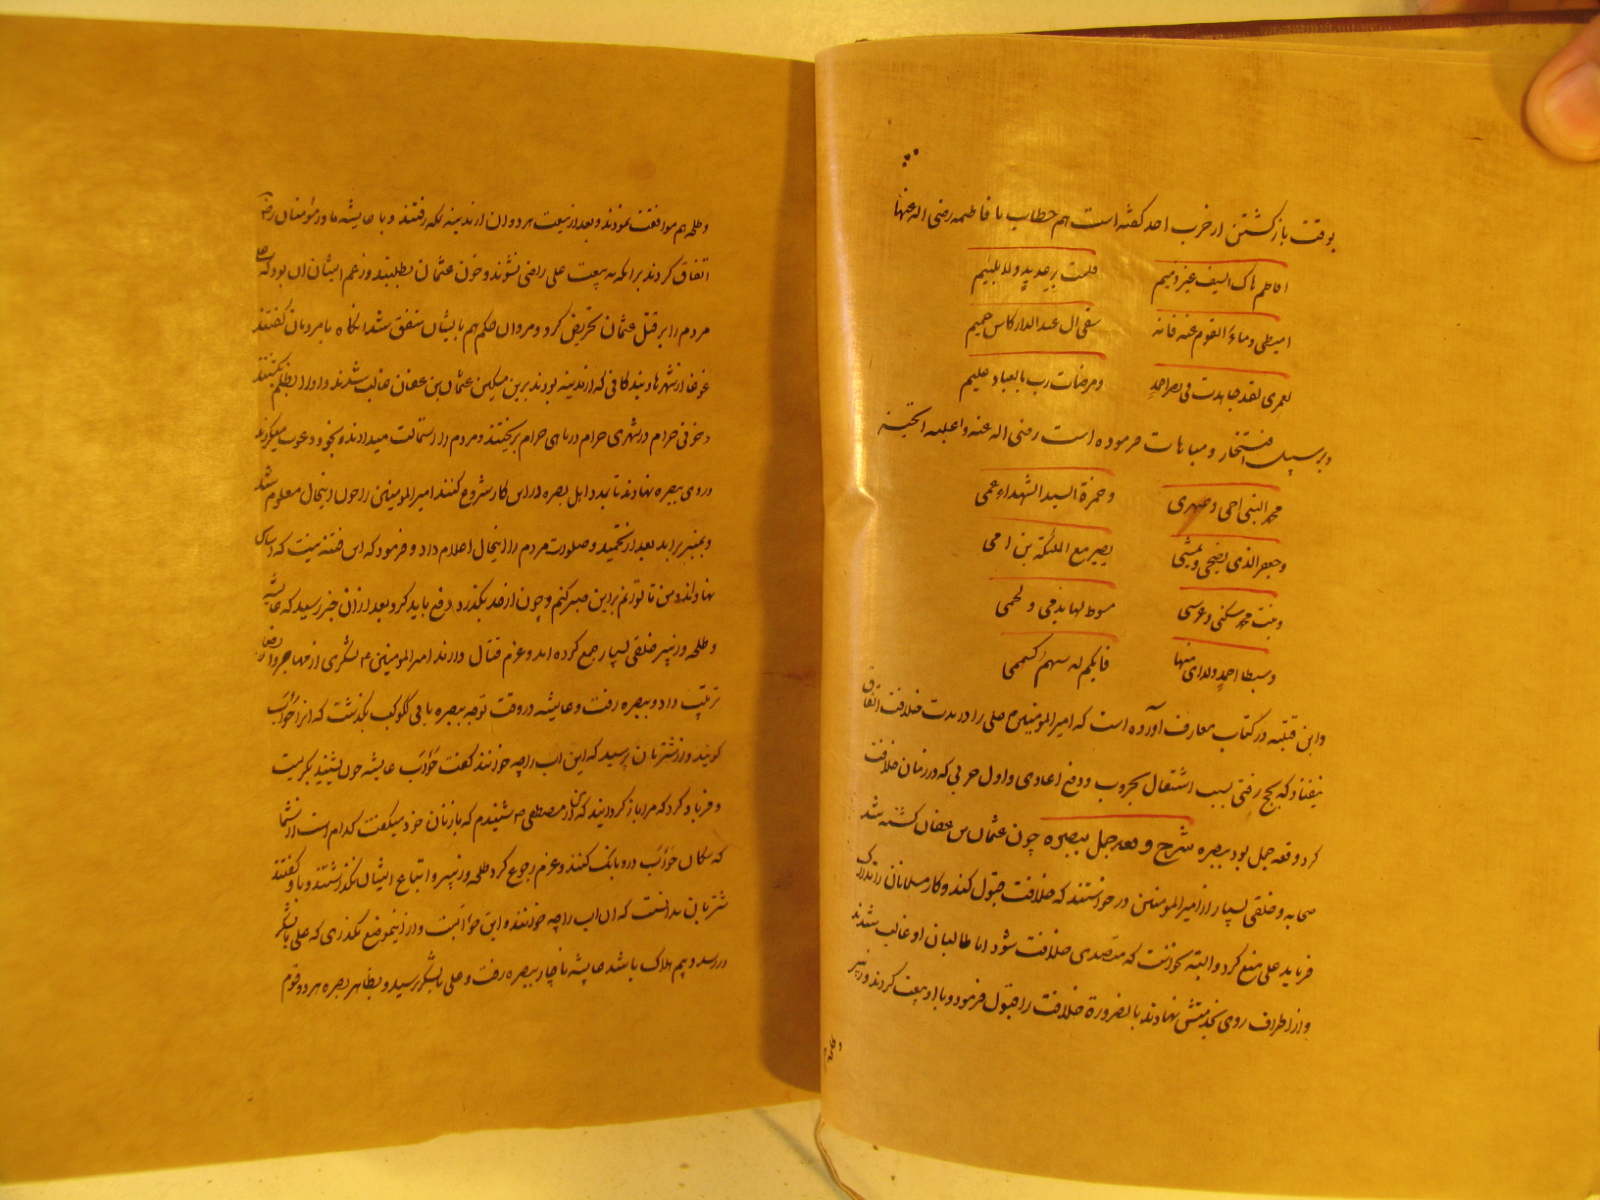 بوقت بازگشتن از حرب احد گفته است هم خطاب با فاطمه رضی اله عنها
افاطم هاک السیف غیر ذمیم فلست برعدید ولا بلئیم
امیطی دماء القوم عنه فانه سقی ال عبد الدار کاس حمیم
لعمری لقد جاهدت فی نصر احمد ومرضات رب بالعباد علیم
وبر سبیل افتخار و مباهات فرموده است رضی اله عنه واعلیه التحیة
محمد النبی اخی وصهری وحمزة السید الشهداء عمی
وجعفر الذی یضحی ویمشی یصیر مع الملئکة بن امی
وبنت محمد سکنی وعرسی مسوط لها بدمی ولحمی
وسبطا احمد ولدای منها فایکم له سهم کسهمی
وابن قتیبه در کتاب معارف آورده است که امیرالمومنین علی را در مدت خلافت اتفاق
نیفتاد که بحج رفتی بسبب اشتغال بحروب و دفع اعادی واول حربی که در زمان خلافت
کرد وقعه جمل بود ببصره شرح وقعه جمل ببصره چون عثمان بن عفان کشته شد
صحابه وخلقی بسیار از امیرالمومنین در خواستند که خلافت قبول کند وکار مسلمانان را تدارک
فرماید علی منع کرد والبته نخواست که متصدی خلافت شود اما طالبان او غالب شدند
واز اطراف روی بخدمتش نهادند بالضرورة خلافت را قبول فرمود وبا او بیعت کردند وزبیر
وطلحه هم موافقت نمودند وبعد از بیعت هر دوان از مدینه بمکه رفتند وبا عایشه مادر مؤمنان رض
اتفاق کردند برانکه به بیعت علی راضی نشوند وخون عثمان بطلبند وزعم ایشان ان بود که علی
مردم را بر قتل عثمان تحریض کرد ومروان حکم هم بایشان متفق شد انگاه با مردمان گفتند
غوغا از شهرها وبندگانی که از مدینه بودند برین مسکین عثمان بن عفان غالب شدند واو را بظلم بکشتند
وخونی حرام در شهری حرام در ماهی حرام بریختند ومردم را استمالت میدادند وبخود دعوت میکردند
وروی ببصره نهادند تا بمدد اهل بصره در این کار شروع کنند امیرالمومنین را چون اینحال معلوم شد
وبمنبر برامد بعد از تحمید وصلوت مردم را اینحال اعلام داد وفرمود که این فتنه نیست که اساس
نهادند ومن تا توانم براین صبر کنم وچون از حد بگذرد دفع باید کرد بعد ازان خبر رسید که عایشه
وطلحه وزبیر خلقی بسیار جمع کرده اند وعزم قتال دارند امیرالمومنین لشکری از مهاجر وانصار
ترتیب داد وببصره رفت وعایشه در وقت توجه ببصره بابی بگذشت که انرا حوأب
گویند واز شتربان پرسید که این اب را چه خوانند گفت حوأب عایشه چون بشنید بگریست
وفریاد کرد که مرا باز گردانید که از مصطفی شنیدم که بازنان خود میگفت کدام است از شما
که سگان حوأب در وبانگ کنند وعزم رجوع کرد طلحه وزبیر واتباع ایشان نگذاشتند وبا او گفتند
شتربان ندانست که ان اب را چه خوانند واین حوأب نیست واز اینموضع بگذری که علی بالشکر
در رسد وبیم هلاک باشد عایشه ناچار ببصره رفت وعلی بالشکر رسید وبظاهر بصره هر دو قوم